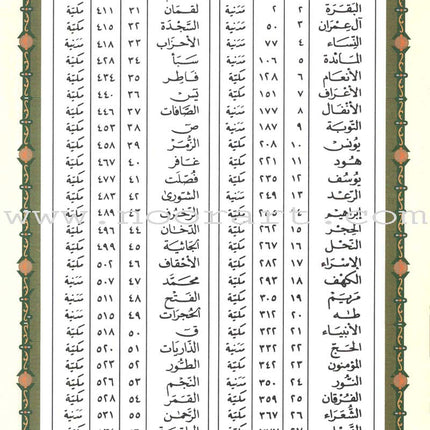 البَقَرَة ٢ ٢ مَدَنية لقمَان ٣١ ٤١١ مكيّة
آل عِمرَان ٣ ٥٠ مَدَنية السَّجْدَة ٣٢ ٤١٥ مكيّة
النِّسَاء ٤ ٧٧ مَدَنية الأحزَاب ٣٣ ٤١٨ مَدَنية
المَائدة ٥ ١٠٦ مَدَنية سَبَأ ٣٤ ٤٢٨ مكيّة
الأنعَام ٦ ١٢٨ مكيّة فَاطِر ٣٥ ٤٣٤ مكيّة
الأعرَاف ٧ ١٥١ مكيّة يسٓ ٣٦ ٤٤٠ مكيّة
الأنفَال ٨ ١٧٧ مَدَنية الصَّافات ٣٧ ٤٤٦ مكيّة
التوبَة ٩ ١٨٧ مَدَنية صٓ ٣٨ ٤٥٣ مكيّة
يُونس ١٠ ٢٠٨ مكيّة الزُّمَر ٣٩ ٤٥٨ مكيّة
هُود ١١ ٢٢١ مكيّة غَافِر ٤٠ ٤٦٧ مكيّة
يُوسُف ١٢ ٢٣٥ مكيّة فُصِّلَت ٤١ ٤٧٧ مكيّة
الرّعد ١٣ ٢٤٩ مَدَنية الشّورىٰ ٤٢ ٤٨٣ مكيّة
إبراهيم ٤٨٩ مكيّة
الحِجْر ١٥ ٢٦٢ مكيّة الدّخَان ٤٤ ٤٩٦ مكيّة
النّحل ١٦ ٢٦٧ مكيّة الجَاثية ٤٥ ٤٩٩ مكيّة
الإسْرَاء ١٧ ٢٨٢ مكيّة الأحقاف ٤٦ ٥٠٢ مكيّة
الكهف ١٨ ٢٩٣ مكيّة محَمَّد ٤٧ ٥٠٧ مَدَنية
مَريَم ١٩ ٣٠٥ مكيّة الفَتْح ٤٨ ٥١١ مَدَنية
طٰه ٢٠ ٣١٢ مكيّة الحُجرَات ٤٩ ٥١٥ مَدَنية
الأنبيَاء ٢١ ٣٢٢ مكيّة قٓ ٥٠ ٥١٨ مكيّة
الحَج ٢٢ ٣٣٢ مَدَنية الذّاريَات ٥١ ٥٢٠ مكيّة
المؤمنون ٢٣ ٣٤٢ مكيّة الطُّور ٥٢ ٥٢٣ مكيّة
النُّور ٢٤ ٣٥٠ مَدَنية النّجْم ٥٣ ٥٢٦ مكيّة
الفُرقان ٢٥ ٣٥٩ مكيّة القَمَر ٥٤ ٥٢٨ مكيّة
الشُّعَرَاء ٢٦ ٣٦٧ مكيّة الرَّحمٰن ٥٥ ٥٣١ مَدَنية